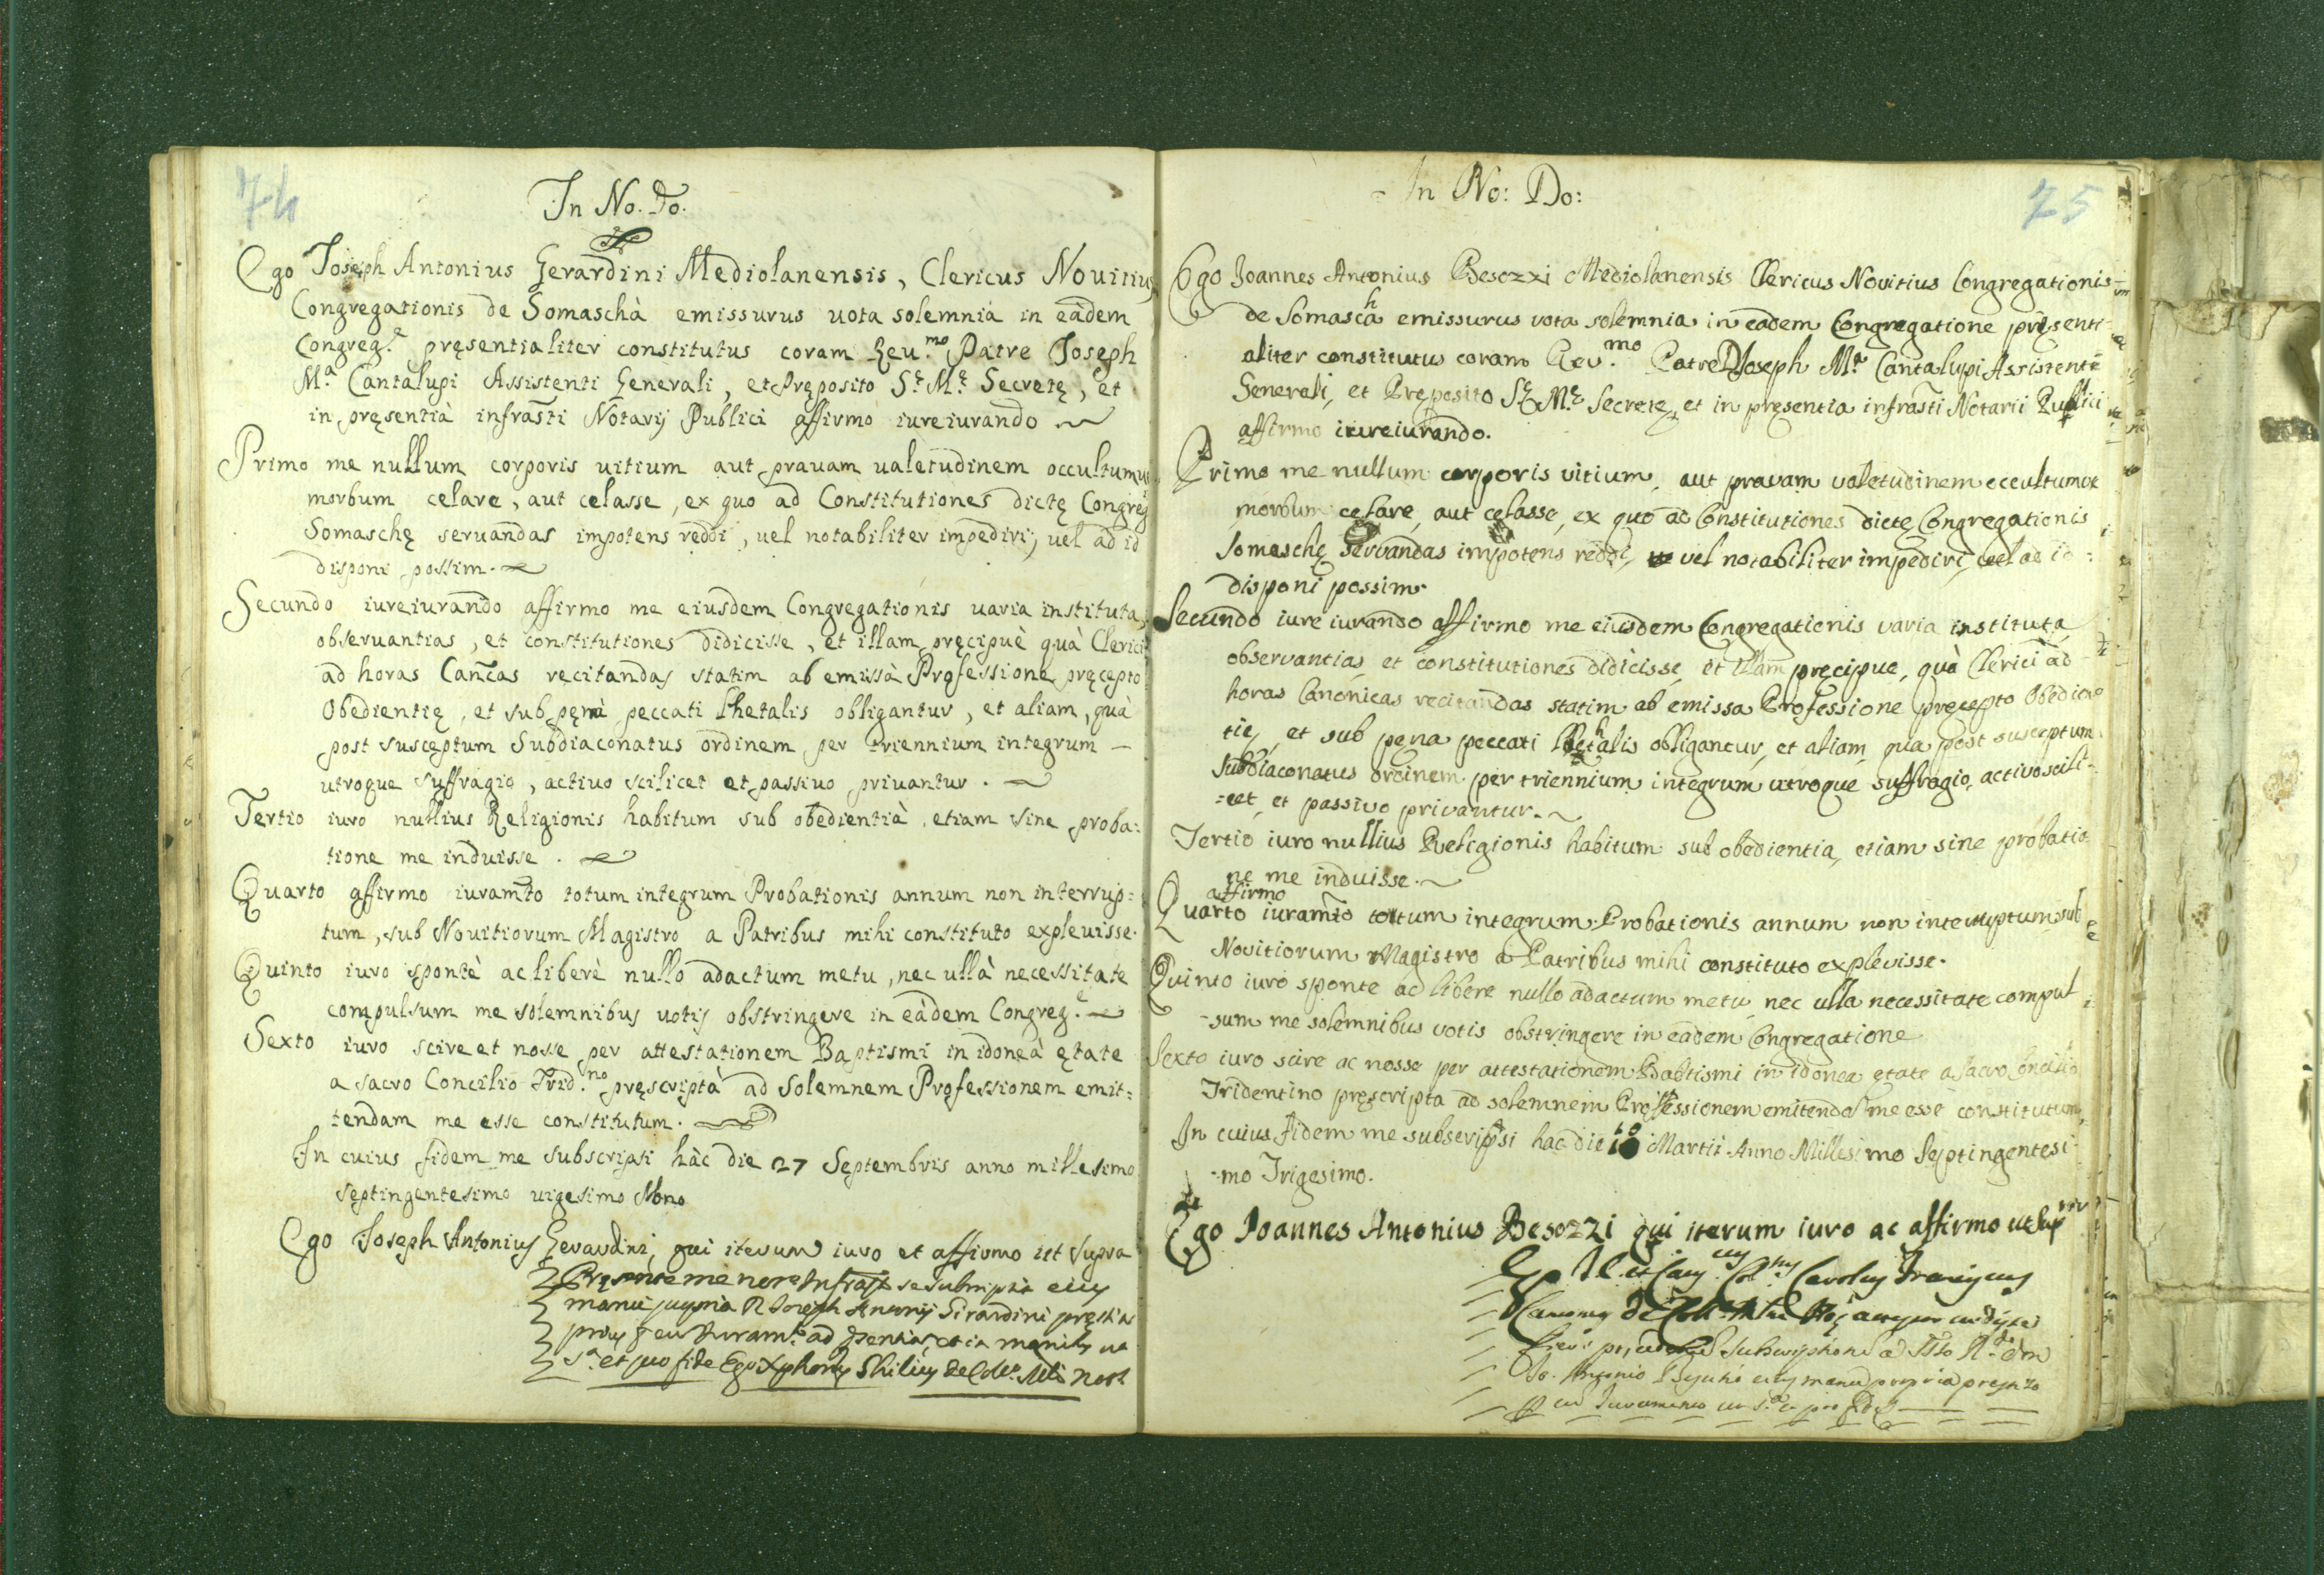 74
In No. Do.
Ego Joseph Antonius Gerardini Mediolanensis, Clericus Nouitius
Congregationis de Somaschà emissurus uota solemnia in eàdem
Congreg.e pręsentialiter constitutus coram Reu.mo Patre Joseph
M.a Cantalupi Assistenti Generali, et Pręposito S.ę M.ę Secretę, et
in pręsentià infrasti Notarij Publici affirmo iureiurando.
Primo me nullum corporis uitium aut prauam ualetudinem occultumue
morbum celare, aut celasse, ex quo ad Constitutiones dictę Congreg
Somaschę seruandas impotens reddi, uel notabiliter impediri, uel ad id
disponi possim.
Secundo iureiurando affirmo me eiusdem Congregationis uaria instituta,
obseruantias, et constitutiones didicisse, et illam pręcipuè quà Clerici
ad horas Canc̃as recitandas statim ab emissà Professione pręcepto
Obedientię, et sub pęnà peccati lhetalis obligantur, et aliam, quà
post susceptum Subdiaconatus ordinem per triennium integrum —
utroque suffragio, actiuo scilicet et passiuo priuantur.
Tertio iuro nullius Religionis habitum sub obedientià etiam sine proba:
tione me induisse.
Quarto affirmo iuram̃to totum integrum Probationis annum non interrup:
tum, sub Nouitiorum Magistro a Patribus mihi constituto expleuisse.
Quinto iuro spontè ac liberè nullo adactum metu, nec ullà necessitate
compulsum me solemnibus uotis obstringere in eàdem Congreg.e
Sexto iuro scire et nosse per attestationem Baptismi in idoneà ętate
a sacro Concilio Trid.no pręscriptà ad Solemnem Professionem emit:
tendam me esse constitutum.
In cuius fidem me subscripsi hàc die 27 Septembris anno millesimo
septingentesimo uigesimo Nono
Ego Joseph Antonius Gerardini, qui iterum iuro et affirmo ut supra
manu propria Joseph Girardini
75
In No: Do:
Ego Joannes Antonius Besozzi Mediolanensis Clericus Novitius Congregationis
de Somascha emissurus vota solemnia in eadem Congregatione pręsenti-
aliter constitutus coram Rev.mo Patre D Joseph M.a Cantalupi Assistente
Generali, et Pręposito S.ę M.ę Secretę, et in pręsentia infrasti Notarii Publici
affirmo iureiurando.
Primo me nullum corporis vitium, aut pravam valetudinem occultumve
morbum celare, aut celasse, ex quo ad Constitutiones dictę Congregationis
Somaschę servandas impotens reddi, vel notabiliter impediri, vel ad id
disponi possim.
Secundo iure iurando affirmo me eiusdem Congregationis varia instituta
observantias, et constitutiones didicisse, et illam pręcipue, quà Clerici ad
horas Canonicas recitandas statim ab emissa Professione pręcepto Obedien
tię, et sub pęna peccati lethalis obligantur, et aliam, qua post susceptum
Subdiaconatus ordinem per triennium integrum utroque suffragio, activo scili-
=cet, et passivo privantur.
Tertio iuro nullius Religionis habitum sub obedientia, etiam sine probatio
ne me induisse.
affirmo
Quarto iuram̃to totum integrum Probationis annum non interruptum sub
Novitiorum Magistro a Patribus mihi constituto explevisse.
Quinto iuro sponte ac libere nullo adactum metu, nec ulla necessitate compul
-sum me solemnibus votis obstringere in eadem Congregatione
Sexto iuro scire ac nosse per attestationem Babtismi in idonea ętate a Sacro Concilio
Tridentino pręscripta ad solemnem Professionem emitendã me esse constitutum,
In cuius fidem me subscripsi hac die 10 Martii Anno Millesimo Septingentesi-
-mo Trigesimo.
Ego Joannes Antonius Besozzi qui iterum iuro ac affirmo ut sup